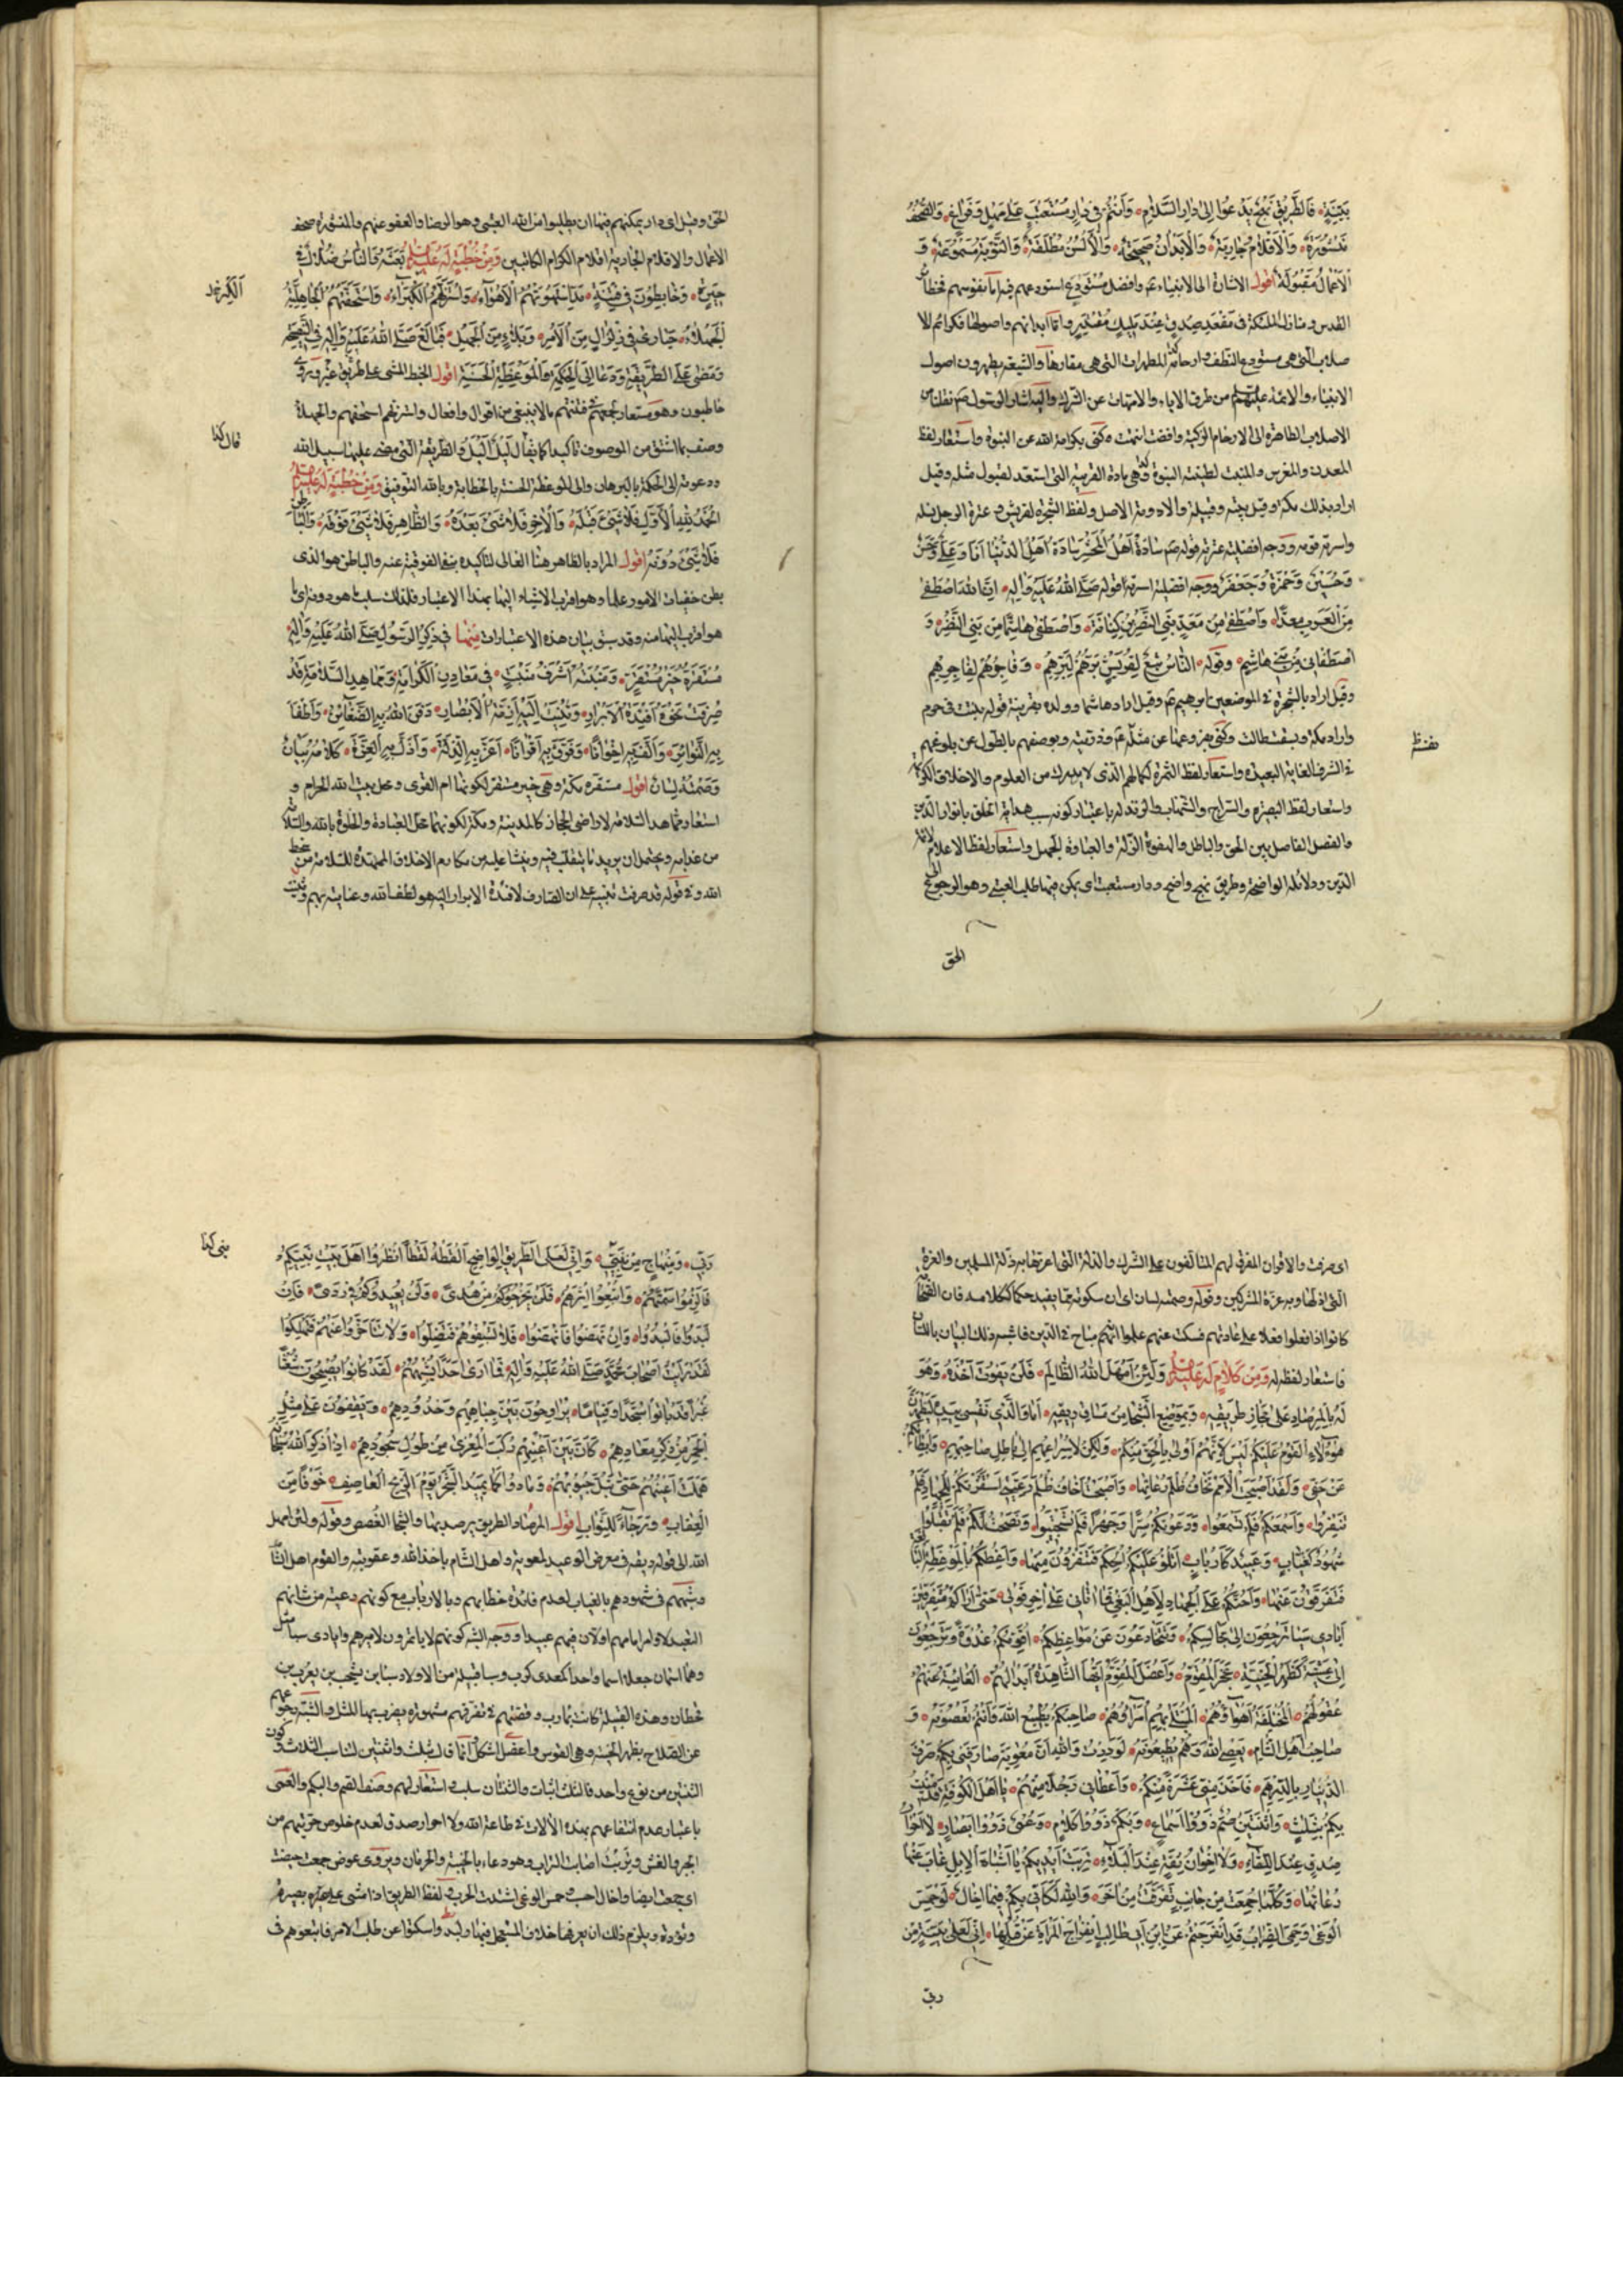 بَيِّنَةٍ فَالطَّرِيقُ نَهْجٌ يَدْعُوا إِلَى دَارِ السَّلَامِ وَأَنْتُمْ فِي دَارِ مُسْتَعْتَبٍ عَلَى مَهَلٍ وَفَرَاغٍ وَالصُّحُفُ
مَنْشُورَةٌ وَالْأَقْلَامُ جَارِيَةٌ وَالْأَبْدَانُ صَحِيحَةٌ وَالْأَلْسُنُ مُطْلَقَةٌ وَالتَّوْبَةُ مَسْمُوعَةٌ وَ
الْأَعْمَالُ مَقْبُولَةٌ اقول الاشارة الى الانبياء وافضل مستودع استودعهم فيه اما نفوسهم فحظائر
القدس ومنازل الملئكة فى مقعد صدق عند مليك مقتدر واما ابدانهم واصولها فكرائم الا
صلاب التى هى مستودع النطف وارحام المطهرات التى هى مقارها والشيعة يطهرون اصول
الانبياء والائمة عليهم السلم من طرف الاباء والامهات عن الشرك واليه اشار الرسول نقلنا من
الاصلاب الطاهرة الى الارحام الزكية وافضت انتهت وكنى بكرامة الله عن النبوة واستعار لفظ
المعدن والمغرس والمنبت لطينة النبوة وهى مادة القريبة التى استعد لقبول مثله وقيل
اراد بذلك مكة وقيل بيته وقبيلته والارومة الاصل ولفظ الشجرة لقريش وعترة الرجل نسله
واسرته قومه ووجه افضلية عترته قوله سَادَةُ أَهْلِ الْمَحْشَرِ سَادَةُ أَهْلِ الدُّنْيَا أَنَا وَعَلِيٌّ وَحَسَنٌ
وَحُسَيْنٌ وَحَمْزَةُ وَجَعْفَرٌ ووجه افضلية اسرته قوله صَلَّى اللهُ عَلَيْهِ وَآلِهِ إِنَّ اللهَ اصْطَفَى
مِنَ الْعَرَبِ مَعَدًّا وَاصْطَفَى مِنْ مَعَدٍّ بَنِي النَّضْرِ بْنِ كِنَانَةَ وَاصْطَفَى هَاشِمًا مِنْ بَنِي النَّضْرِ وَ
اصْطَفَانِي مِنْ بَنِي هَاشِمٍ وقوله النَّاسُ تَبَعٌ لِقُرَيْشٍ بَرُّهُمْ لِبَرِّهِمْ وَفَاجِرُهُمْ لِفَاجِرِهِمْ
وقيل اراد بالشجرة فى الموضعين ابرهيم وقيل اراد هاشما وولده بقرينة قوله نبتت فى حرم
واراد مكة وبسقت طالت وكنى بفروعها عن مثله وذريته وبوصفهم بالطول عن بلوغهم
فى الشرف الغاية البعيدة واستعار لفظ الثمرة لكمالهم الذى لا يدرك من العلوم والاخلاق الكريمة
واستعار لفظ البصيرة والسراج والشهاب باعتبار كونه سبب هداية الخلق بانوار الدين
والفصل الفاصل بين الحق والباطل والهفوة الزلة والغباوة الجهل واستعار لفظ الاعلام لائمة
الدين ودلائله الواضحة وطريق نهج واضح ودار مستعتب اى يمكن فيها طلب العتبى وهو الرجوع الى
الحق
الحق وقيل اى دار يمكنهم فيها ان يطلبوا من الله العتبى وهو الرضا والعفو عنهم والمنشورة صحف
الاعمال والاقلام الجارية اقلام الكرام الكاتبين وَمِنْ خُطْبَةٍ لَهُ عليه السلم بَعَثَهُ وَالنَّاسُ ضُلَّالٌ فِي
حَيْرَةٍ وَخَابِطُونَ فِي فِتْنَةٍ قَدِ اسْتَهْوَتْهُمُ الْأَهْوَاءُ وَاسْتَزَلَّهُمُ الْكُبَرَاءُ وَاسْتَخَفَّتْهُمُ الْجَاهِلِيَّةُ
الْجَهْلَاءُ حَيَارَى فِي زِلْزَالٍ مِنَ الْأَمْرِ وَبَلَاءٍ مِنَ الْجَهْلِ فَبَالَغَ صَلَّى اللهُ عَلَيْهِ وَآلِهِ فِي النَّصِيحَةِ
وَمَضَى عَلَى الطَّرِيقَةِ وَدَعَا إِلَى الْحِكْمَةِ وَالْمَوْعِظَةِ الْحَسَنَةِ اقول الخبط المشى على طريق غير
خاطبون وهو مستعار فتنتهم بما لا ينبغى من اقوال وافعال واستخفتهم والجهلاء
وصف بما اشتق من الموصوف تاكيدا كما يقال لَيْلٌ أَلْيَلُ والطريقة التى مضى عليها سبيل الله
ودعوته الى الحكمة بالبرهان والى الموعظة الحسنة بالخطابة وبالله التوفيق وَمِنْ خُطْبَةٍ لَهُ عليه السلم
الْحَمْدُ لِلّهِ الْأَوَّلِ فَلَا شَيْءَ قَبْلَهُ وَالْآخِرِ فَلَا شَيْءَ بَعْدَهُ وَالظَّاهِرِ فَلَا شَيْءَ فَوْقَهُ وَالْبَاطِنِ
فَلَا شَيْءَ دُونَهُ اقول المراد بالظاهر هنا العالى لتاكيده بنفى الفوقية عنه والباطن هو الذى
بطن خفيات الامور علما وهو اقرب الاشياء اليها بهذا الاعتبار فلذلك سلب ما هو دونه اى ما
هو اقرب اليها منه وقد سبق بيان هذه الاعتبارات مِنْهَا فِي ذِكْرِ الرَّسُولِ صَلَّى اللهُ عَلَيْهِ وَآلِهِ
مُسْتَقَرُّهُ خَيْرُ مُسْتَقَرٍّ وَمَنْبَتُهُ أَشْرَفُ مَنْبَتٍ فِي مَعَادِنِ الْكَرَامَةِ وَمَمَاهِدِ السَّلَامَةِ قَدْ
صُرِفَتْ نَحْوَهُ أَفْئِدَةُ الْأَبْرَارِ وَثُنِيَتْ إِلَيْهِ أَزِمَّةُ الْأَبْصَارِ دَفَنَ اللهُ بِهِ الضَّغَائِنَ وَأَطْفَأَ
بِهِ النَّوَائِرَ وَأَلَّفَ بِهِ إِخْوَانًا وَفَرَّقَ بِهِ أَقْرَانًا أَعَزَّ بِهِ الذِّلَّةَ وَأَذَلَّ بِهِ الْعِزَّةَ كَلَامُهُ بَيَانٌ
وَصَمْتُهُ لِسَانٌ اقول مستقره مكة وهى خير مستقر لكونها ام القرى ومحل بيت الله الحرام و
استعار مماهد السلامة لاراضى الحجاز كالمدينة ومكة لكونهما محل العبادة والخلوة بالله والسلامة
من عذابه ويحتمل ان يريد ما يتقلب فيه وينشا عليه من مكارم الاخلاق الممهدة للسلامة من سخط
الله وفى قوله قد صرفت تنبيه على ان الصارف لافئدة الابرار اليه هو لطف الله وعنايته بهم
قال كذا
اى صرفت والاقران المفرق لهم المتالفون على الشرك والذلة التى اعزها به ذلة المسلمين والعزة
التى اذلها به عزة المشركين وقوله وصمته لسان اى ان سكوته مما يفيد حكما ككلامه فان الصحابة
كانوا اذا فعلوا فعلا على عادتهم فسكت عنهم علموا انهم مباح فى الدين فاشبه ذلك البيان باللسان
فاستعار لفظه له وَمِنْ كَلَامٍ لَهُ عليه السلم وَلَئِنْ أَمْهَلَ اللهُ الظَّالِمَ فَلَنْ يَفُوتَ أَخْذُهُ وَهُوَ
لَهُ بِالْمِرْصَادِ عَلَى مَجَازِ طَرِيقِهِ وَبِمَوْضِعِ الشَّجَا مِنْ مَسَاغِ رِيقِهِ أَمَا وَالَّذِي نَفْسِي بِيَدِهِ لَيَظْهَرَنَّ
هَؤُلَاءِ الْقَوْمُ عَلَيْكُمْ لَيْسَ لِأَنَّهُمْ أَوْلَى بِالْحَقِّ مِنْكُمْ وَلَكِنْ لِإِسْرَاعِهِمْ إِلَى بَاطِلِ صَاحِبِهِمْ وَإِبْطَائِكُمْ
عَنْ حَقِّي وَلَقَدْ أَصْبَحَتِ الْأُمَمُ تَخَافُ ظُلْمَ رُعَاتِهَا وَأَصْبَحْتُ أَخَافُ ظُلْمَ رَعِيَّتِي اسْتَنْفَرْتُكُمْ لِلْجِهَادِ فَلَمْ
تَنْفِرُوا وَأَسْمَعْتُكُمْ فَلَمْ تَسْمَعُوا وَدَعَوْتُكُمْ سِرًّا وَجَهْرًا فَلَمْ تَسْتَجِيبُوا وَنَصَحْتُ لَكُمْ فَلَمْ تَقْبَلُوا
شُهُودٌ كَغُيَّابٍ وَعَبِيدٌ كَأَرْبَابٍ أَتْلُو عَلَيْكُمُ الْحِكَمَ فَتَنْفِرُونَ مِنْهَا وَأَعِظُكُمْ بِالْمَوْعِظَةِ الْبَالِغَةِ
فَتَتَفَرَّقُونَ عَنْهَا وَأَحُثُّكُمْ عَلَى الْجِهَادِ لِأَهْلِ الْبَغْيِ فَمَا آتِي عَلَى آخِرِ قَوْلِي حَتَّى أَرَاكُمْ مُتَفَرِّقِينَ
أَيَادِي سَبَا تَرْجِعُونَ إِلَى مَجَالِسِكُمْ وَتَتَخَادَعُونَ عَنْ مَوَاعِظِكُمْ أُقَوِّمُكُمْ غُدْوَةً وَتَرْجِعُونَ
إِلَيَّ عَشِيَّةً كَظَهْرِ الْحَنِيَّةِ عَجَزَ الْمُقَوِّمُ وَأَعْضَلَ الْمُقَوَّمُ أَيُّهَا الشَّاهِدَةُ أَبْدَانُهُمْ الْغَائِبَةُ عَنْهُمْ
عُقُولُهُمْ الْمُخْتَلِفَةُ أَهْوَاؤُهُمْ الْمُبْتَلَى بِهِمْ أُمَرَاؤُهُمْ صَاحِبُكُمْ يُطِيعُ اللهَ وَأَنْتُمْ تَعْصُونَهُ وَ
صَاحِبُ أَهْلِ الشَّامِ يَعْصِي اللهَ وَهُمْ يُطِيعُونَهُ لَوَدِدْتُ وَاللهِ أَنَّ مُعَوِيَةَ صَارَفَنِي بِكُمْ صَرْفَ
الدِّينَارِ بِالدِّرْهَمِ فَأَخَذَ مِنِّي عَشَرَةً مِنْكُمْ وَأَعْطَانِي رَجُلًا مِنْهُمْ يَا أَهْلَ الْكُوفَةِ مُنِيتُ
بِكُمْ بِثَلَاثٍ وَاثْنَتَيْنِ صُمٌّ ذَوُوا أَسْمَاعٍ وَبُكْمٌ ذَوُوا كَلَامٍ وَعُمْيٌ ذَوُوا أَبْصَارٍ لَا أَحْرَارُ
صِدْقٍ عِنْدَ اللِّقَاءِ وَلَا إِخْوَانُ ثِقَةٍ عِنْدَ الْبَلَاءِ تَرِبَتْ أَيْدِيكُمْ يَا أَشْبَاهَ الْإِبِلِ غَابَ عَنْهَا
رُعَاتُهَا كُلَّمَا جُمِعَتْ مِنْ جَانِبٍ تَفَرَّقَتْ مِنْ آخَرَ وَاللهِ لَكَأَنِّي بِكُمْ فِيمَا إِخَالُ لَوْ حَمِسَ
الْوَغَى وَحَمِيَ الضِّرَابُ قَدِ انْفَرَجْتُمْ عَنِ ابْنِ أَبِي طَالِبٍ انْفِرَاجَ الْمَرْأَةِ عَنْ قُبُلِهَا إِنِّي لَعَلَى بَيِّنَةٍ مِنْ
ربى
رَبِّي وَمِنْهَاجٍ مِنْ نَبِيِّي وَإِنِّي لَعَلَى الطَّرِيقِ الْوَاضِحِ أَلْقُطُهُ لَقْطًا انْظُرُوا أَهْلَ بَيْتِ نَبِيِّكُمْ
فَالْزَمُوا سَمْتَهُمْ وَاتَّبِعُوا أَثَرَهُمْ فَلَنْ يُخْرِجُوكُمْ مِنْ هُدًى وَلَنْ يُعِيدُوكُمْ فِي رَدًى فَإِنْ
لَبَدُوا فَالْبُدُوا وَإِنْ نَهَضُوا فَانْهَضُوا فَلَا تَسْبِقُوهُمْ فَتَضِلُّوا وَلَا تَتَأَخَّرُوا عَنْهُمْ فَتَهْلِكُوا
لَقَدْ رَأَيْتُ أَصْحَابَ مُحَمَّدٍ صَلَّى اللهُ عَلَيْهِ وَآلِهِ فَمَا أَرَى أَحَدًا يُشْبِهُهُمْ لَقَدْ كَانُوا يُصْبِحُونَ شُعْثًا
غُبْرًا قَدْ بَاتُوا سُجَّدًا وَقِيَامًا يُرَاوِحُونَ بَيْنَ جِبَاهِهِمْ وَخُدُودِهِمْ وَيَقِفُونَ عَلَى مِثْلِ
الْجَمْرِ مِنْ ذِكْرِ مَعَادِهِمْ كَأَنَّ بَيْنَ أَعْيُنِهِمْ رُكَبَ الْمِعْزَى مِنْ طُولِ سُجُودِهِمْ إِذَا ذُكِرَ اللهُ سُبْحَانَهُ
هَمَلَتْ أَعْيُنُهُمْ حَتَّى تَبُلَّ جُيُوبَهُمْ وَمَادُوا كَمَا يَمِيدُ الشَّجَرُ يَوْمَ الرِّيحِ الْعَاصِفِ خَوْفًا مِنَ
الْعِقَابِ وَرَجَاءً لِلثَّوَابِ اقول المرصاد الطريق يرصد بها والشجا الغصص وقوله ولئن امهل
الله الى قوله ريقه فى معرض الوعيد لمعوية واهل الشام باخذ الله وعقوبته والقوم اهل الشام
وشبههم فى شهودهم بالغياب لعدم فائدة خطابهم وبالارباب مع كونهم رعية من شانهم
التعبد لاوامر امامهم ووجه الشبه كونهم لا ياتمرون لامرهم وايادى سبا مثل
وهما اسمان جعلا اسما واحدا كمعدى كرب وسبا قبيلة من الاولاد سبا بن يشجب بن يعرب بن
قحطان وهذه القبيلة كانت بمارب وقصتهم فى تفرقهم مشهورة يضرب بها المثل والتشبيه
عن الصلاح بظهر الحنية وهى القوس واعضل اشكل انما قال بثلاث واثنتين لتناسب الثلاث وكون
الثنتين من نوع واحد فالثلث اثبات والثنتان سلب استعار لهم وصف الصم والبكم والعمى
باعتبار عدم انتفاعهم بهذه الالات فى طاعة الله ولا احرار صدق لعدم خلوص حريتهم من
وتربت اصابت التراب وهو دعاء بالخيبة والحرمان ويروى عوض جمعت
اى جمعت ايضا واخال احسب وحمس الوغى اشتدت الحرب لفظ الطريق اذا مشى على بصيرة
وتؤدة ويلزم ذلك ان يعرفها خلاف المستعجل فيها ولبد واسكنوا عن طلب الامر فاتبعوهم فى